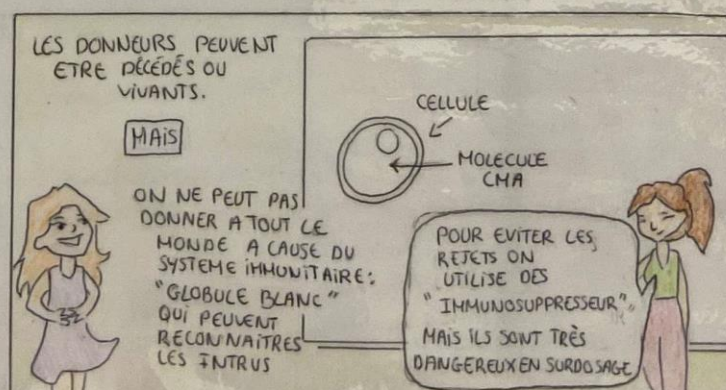 LES DONNEURS PEUVENT
ETRE DÉCÉDÉS OU
VIVANTS.
MAIS
ON NE PEUT PAS
DONNER A TOUT LE
MONDE A CAUSE DU
SYSTEME IMMUNITAIRE:
"GLOBULE BLANC"
QUI PEUVENT
RECONNAITRES
LES INTRUS
CELLULE
MOLECULE
CMA
POUR EVITER LES
REJETS ON
UTILISE DES
"IMMUNOSUPPRESSEUR"
MAIS ILS SONT TRÈS
DANGEREUX EN SURDOSAGE